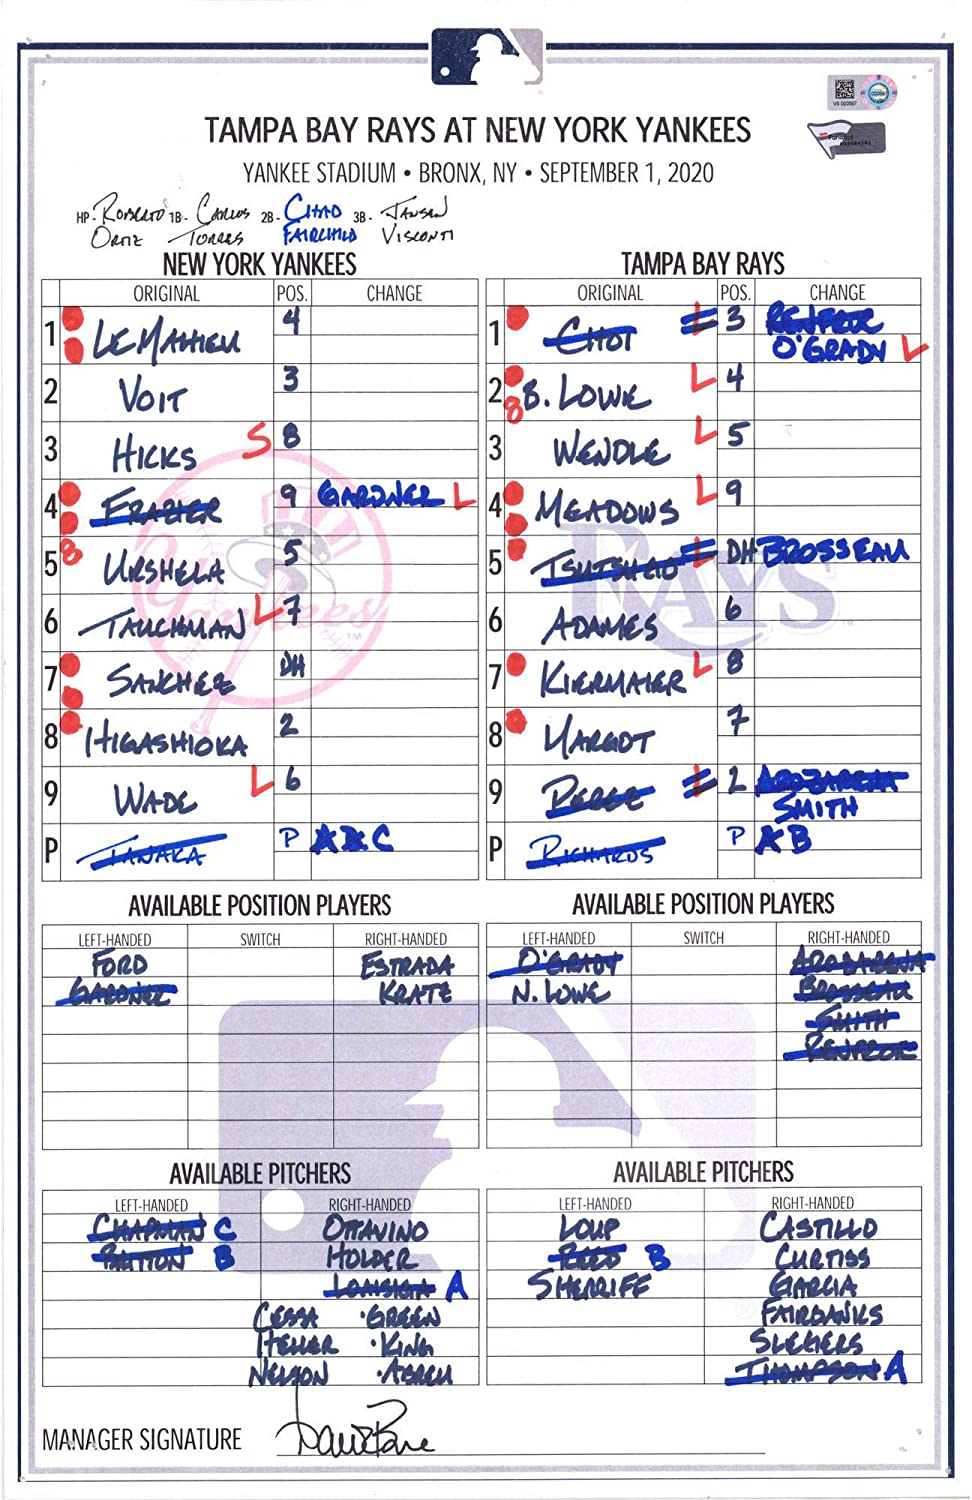 VS 020597
Fanatics
TAMPA BAY RAYS AT NEW YORK YANKEES
YANKEE STADIUM • BRONX, NY • SEPTEMBER 1, 2020
HP- ROBERTO 1B- CARLOS 2B- CHAD 3B- JANSEN
ORTIZ TORRES FAIRCHILD VISCONTI
NEW YORK YANKEES
ORIGINAL POS. CHANGE
1 LEMAHIEU 4
2 VOIT 3
3 HICKS S 8
4 FRAZIER 9 GARDNER L
5 8 URSHELA 5
6 TAUCHMAN L 7
7 SANCHEZ DH
8 HIGASHIOKA 2
9 WADE L 6
P TANAKA P A B C
Yankees
TM
TAMPA BAY RAYS
ORIGINAL POS. CHANGE
1 CHOI L 3 RENFROE
O'GRADY L
2 8 B. LOWE L 4
3 WENDLE L 5
4 MEADOWS L 9
5 TSUTSUGO L DH BROSSEAU
6 ADAMES 6
7 KIERMAIER L 8
8 MARGOT 7
9 PEREZ L 2 AROZARENA
SMITH
P RICHARDS P A B
RAYS
AVAILABLE POSITION PLAYERS
LEFT-HANDED SWITCH RIGHT-HANDED
FORD ESTRADA
GARDNER KRATZ
AVAILABLE POSITION PLAYERS
LEFT-HANDED SWITCH RIGHT-HANDED
O'GRADY AROZARENA
N. LOWE BROSSEAU
SMITH
RENFROE
AVAILABLE PITCHERS
LEFT-HANDED RIGHT-HANDED
CHAPMAN C OTTAVINO
BRITTON B HOLDER
LOAISIGA A
CESSA •GREEN
HELLER •KING
NELSON •ABREU
AVAILABLE PITCHERS
LEFT-HANDED RIGHT-HANDED
LOUP CASTILLO
REED B CURTISS
SHERRIFF GARCIA
FAIRBANKS
SLEGERS
THOMPSON A
MANAGER SIGNATURE